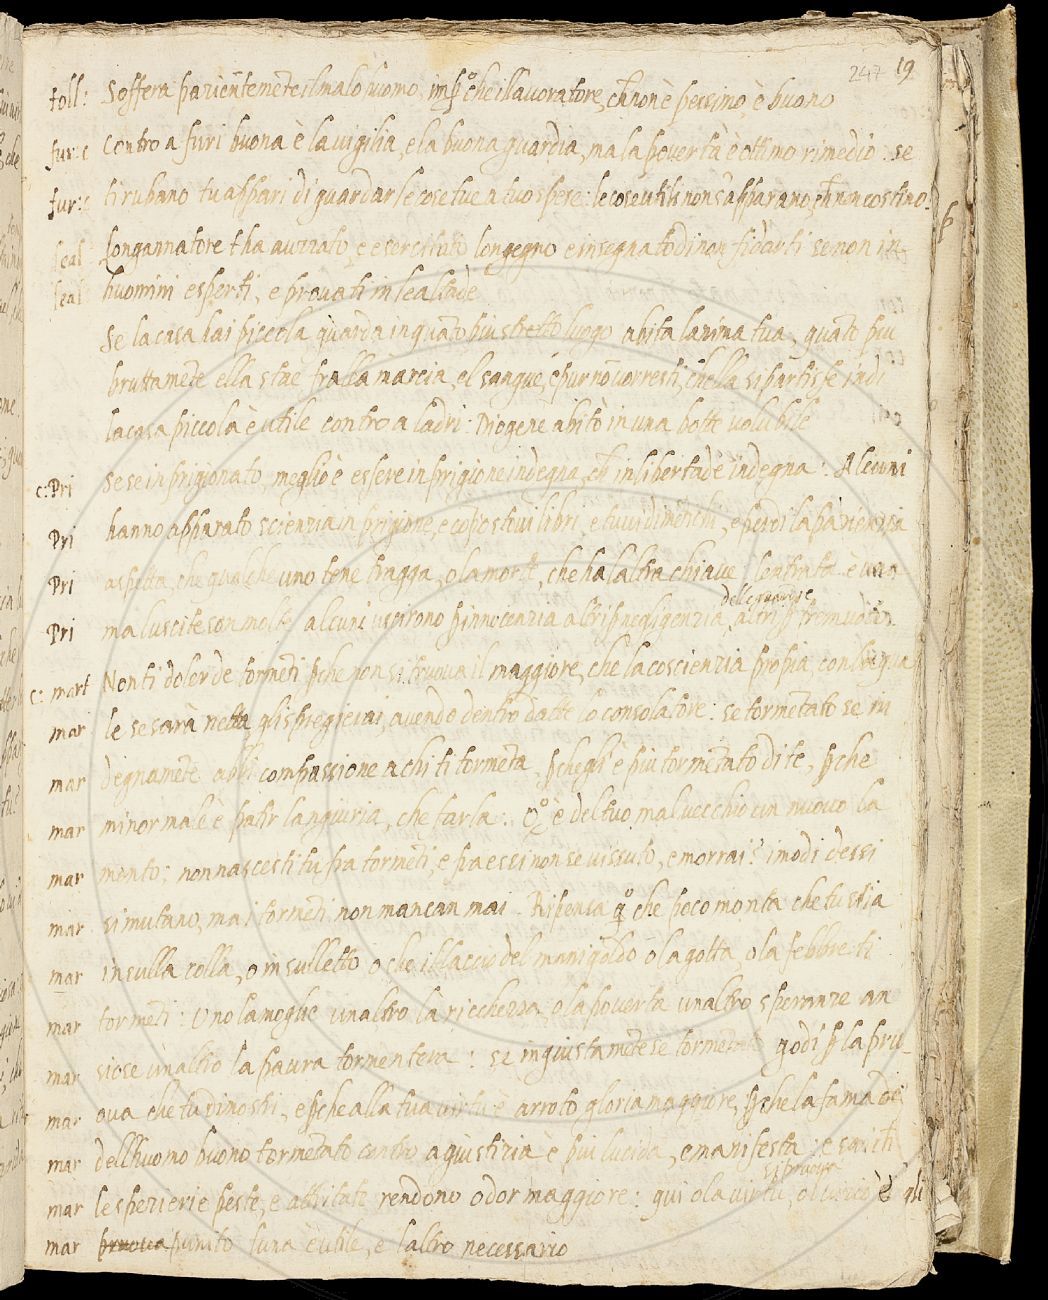 247 19
toll: Soffera pazientemẽte il malo uomo, imp̱º che illavoratore, ch̃ non è pessimo, è buono
fur: c Contro a furi buona è la vigilia, e la buona guardia, ma la povertà è ottimo rimedio: se
fur: c ti rubano tu appari di guardar le cose tue a tuo spese: le cose utili non s'apparano, ch̃ non costino.
leal Longannatore t ha avezzato, e esercitato longegno e insegnato di non fidarti se non in
leal huomini esperti, e provati in lealtade
Se la casa hai piccola guarda in quãto piu stretto luogo abita lanima tua, quãto piu
bruttamẽte ella stae fralla marcia, el sangue, e pur nõ vorresti, chella si partisse indi
la casa piccola è utile contro a ladri: Diogene abitò in una botte volubile
c: Pri Se se inprigionato, meglio è essere in prigione indegna, ch̃ in libertade indegna: Alcuni
Pri hanno apparato scienzia in prigione, e cõpostovi libri, e tu vi dimentichi, e perdi la pazienzia
Pri aspetta, che qualche uno tene tragga, o la morte, che ha laltra chiave: lentrata è una
delle guardie
Pri ma luscite son molte alcuni uscirono p̱ innocenzia altri p̱ negligenzia, altri p̱
c: mart Non ti doler de tormẽti p̱che non si truova il maggiore, che la coscienzia propia, con la qua
mar le se sarà netta gli spregierai, avendo dentro da te lo consolatore: se tormẽtato se in
mar degnamẽte abbi compassione a chi ti tormẽta, p̱chegli è piu tormẽtato di te, p̱che
mar minor male è patir langiuria, che farla. Qº è del tuo mal vecchio un nuovo la
mar mento: non nascesti tu fra tormẽti, e fra essi non se vissuto, e morrai? i modi dessi
mar si mutano, ma i tormẽti non mancan mai. Ripensa qº che poco monta che tu stia
mar in sulla colla, o in sulletto o che il laccio del manigoldo o la gotta, o la febbre ti
mar tormẽti: Uno la moglie unaltro la ricchezza o la poverta unaltro speranze an
mar siose unaltro la paura tormenteva: se ingiustamẽte se tormẽtato godi p̱ la pru-
mar ova che tu dimostri, e p̱che alla tua virtu è arroto gloria maggiore, p̱che la fama
mar dellhuomo buono tormẽtato contro a giustizia è piu lucida, e manifesta: e
si pruova
mar le spezierie peste, e attritate rendono odor maggiore: qui o la virtu, o è gli
mar pruova punito luna è utile, e laltro necessario